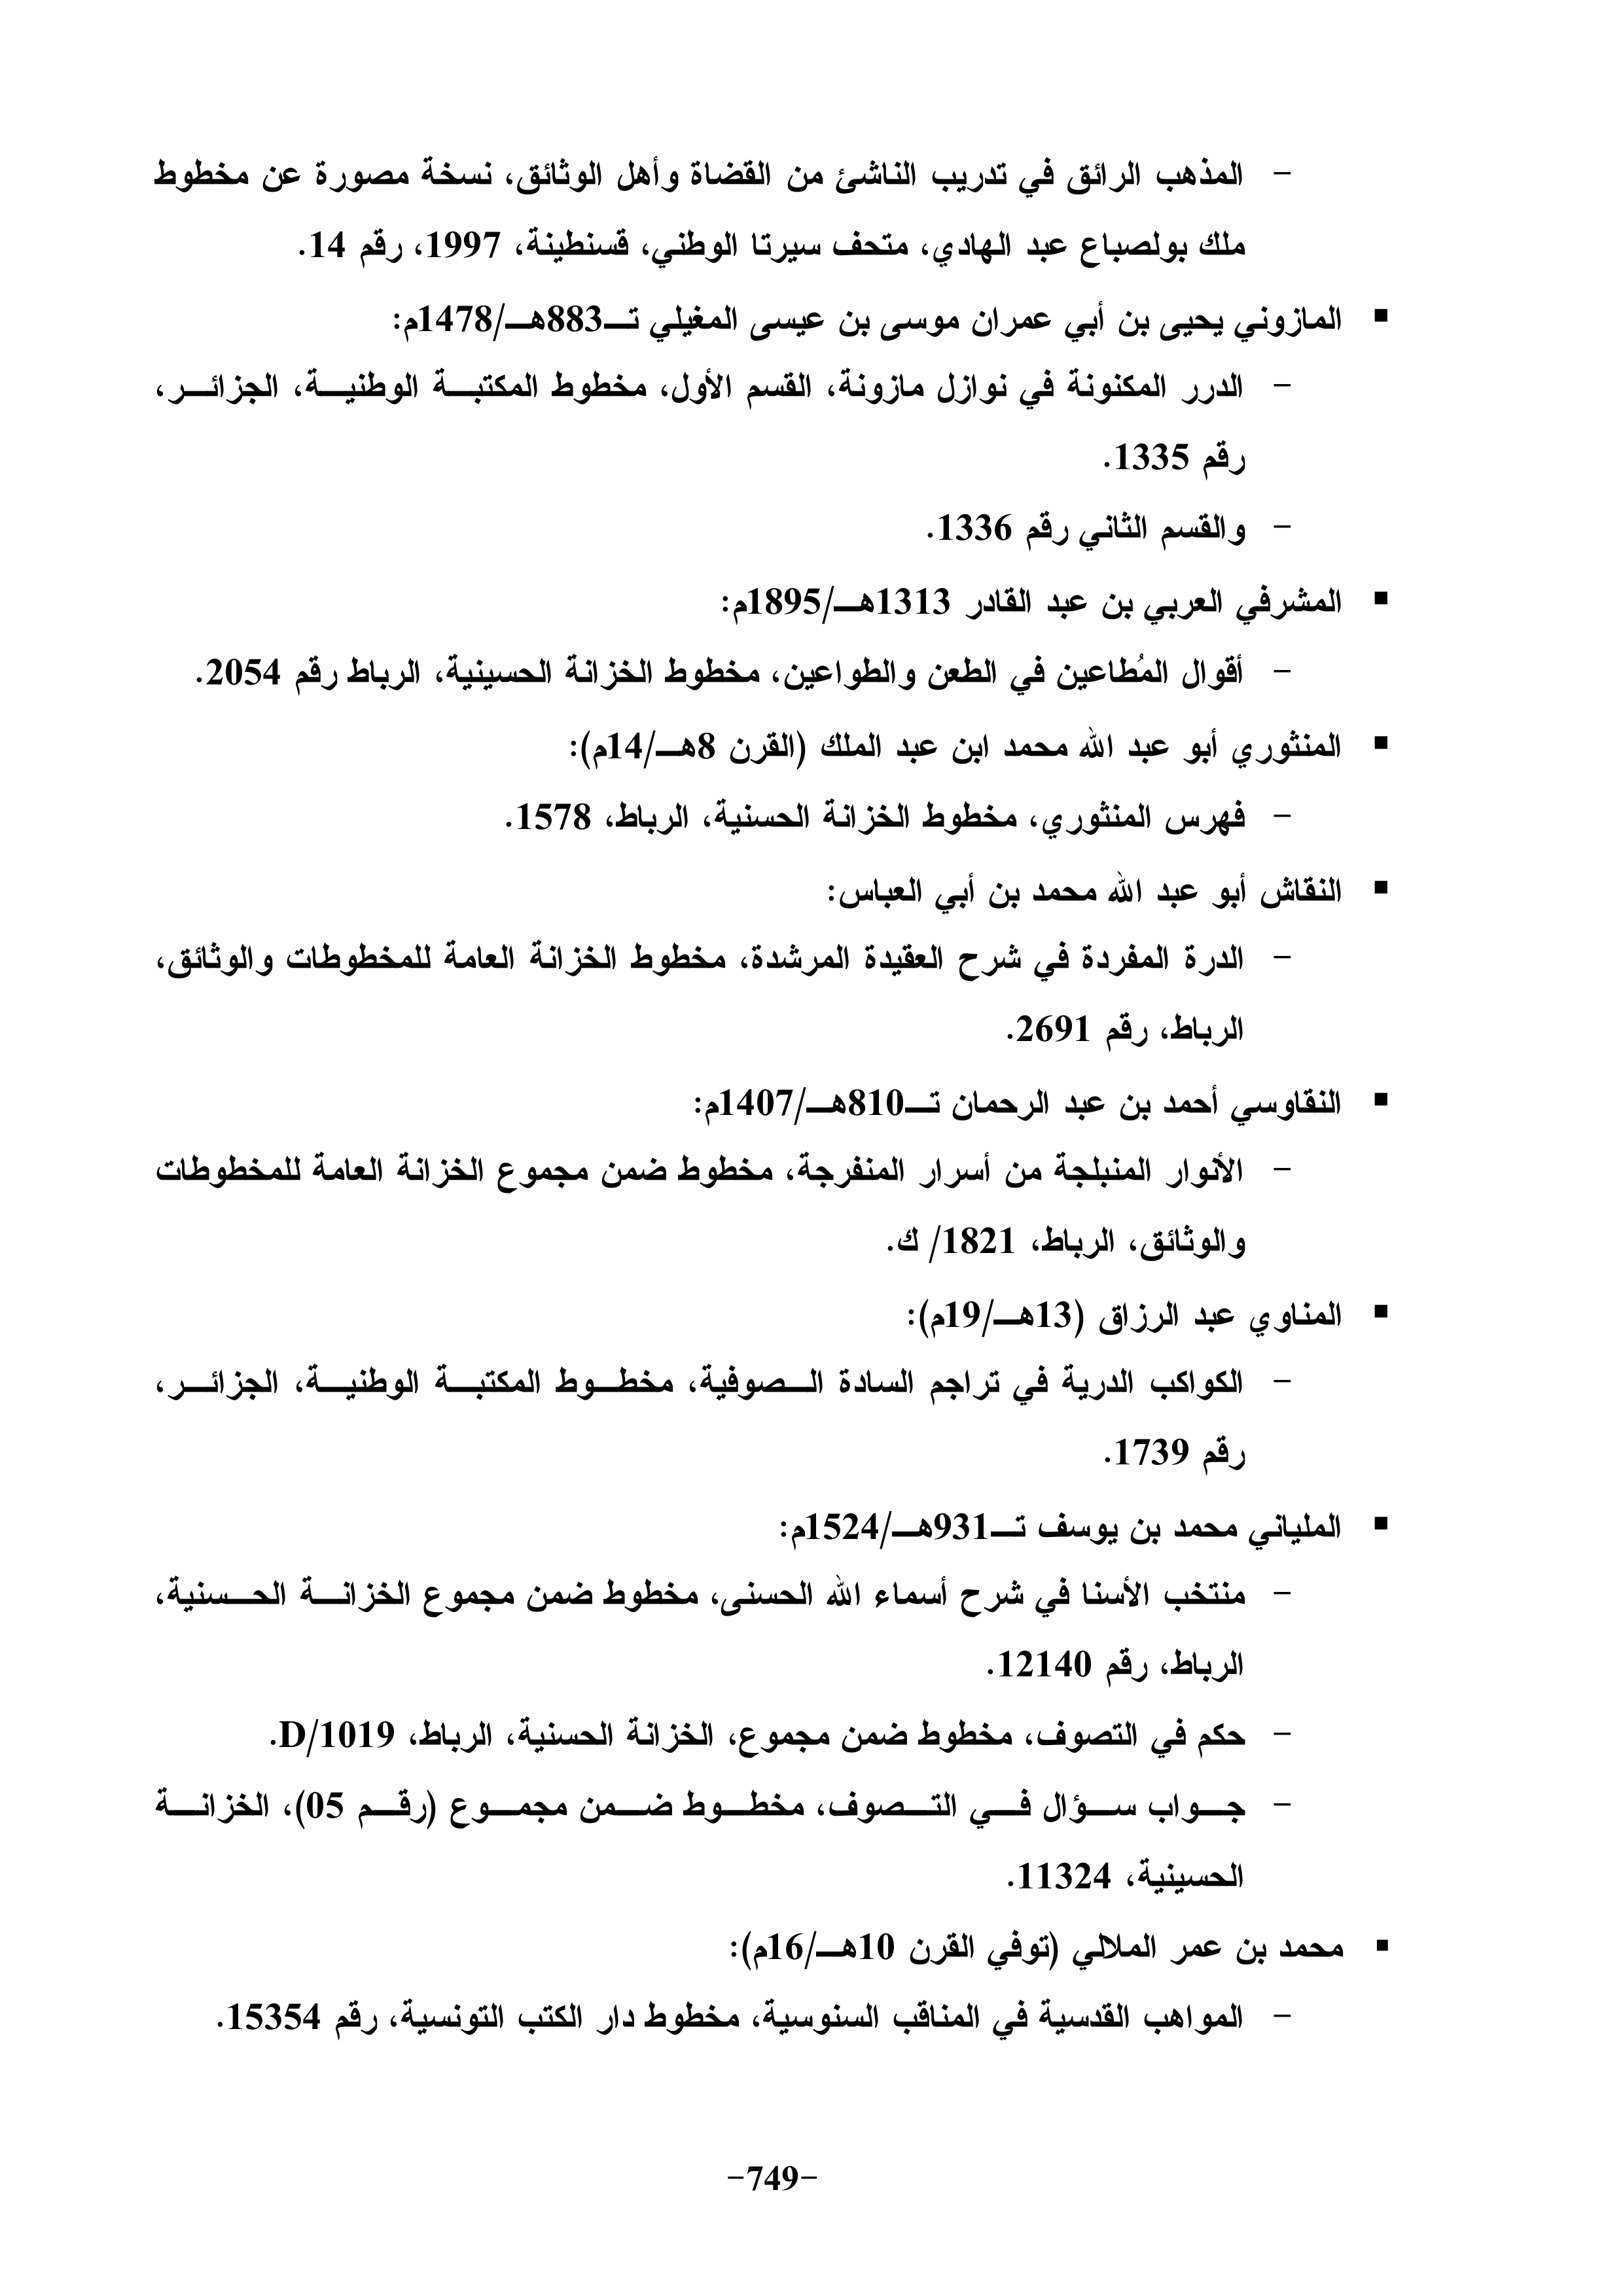 - المذهب الرائق في تدريب الناشئ من القضاة وأهل الوثائق، نسخة مصورة عن مخطوط
ملك بولصباع عبد الهادي، متحف سيرتا الوطني، قسنطينة، 1997، رقم 14.
▪ المازوني يحيى بن أبي عمران موسى بن عيسى المغيلي تـ883هـ/1478م:
- الدرر المكنونة في نوازل مازونة، القسم الأول، مخطوط المكتبة الوطنية، الجزائر،
رقم 1335.
- والقسم الثاني رقم 1336.
▪ المشرفي العربي بن عبد القادر 1313هـ/1895م:
- أقوال المُطاعين في الطعن والطواعين، مخطوط الخزانة الحسينية، الرباط رقم 2054.
▪ المنثوري أبو عبد الله محمد ابن عبد الملك (القرن 8هـ/14م):
- فهرس المنثوري، مخطوط الخزانة الحسنية، الرباط، 1578.
▪ النقاش أبو عبد الله محمد بن أبي العباس:
- الدرة المفردة في شرح العقيدة المرشدة، مخطوط الخزانة العامة للمخطوطات والوثائق،
الرباط، رقم 2691.
▪ النقاوسي أحمد بن عبد الرحمان تـ810هـ/1407م:
- الأنوار المنبلجة من أسرار المنفرجة، مخطوط ضمن مجموع الخزانة العامة للمخطوطات
والوثائق، الرباط، 1821/ ك.
▪ المناوي عبد الرزاق (13هـ/19م):
- الكواكب الدرية في تراجم السادة الصوفية، مخطوط المكتبة الوطنية، الجزائر،
رقم 1739.
▪ الملياني محمد بن يوسف تـ931هـ/1524م:
- منتخب الأسنا في شرح أسماء الله الحسنى، مخطوط ضمن مجموع الخزانة الحسنية،
الرباط، رقم 12140.
- حكم في التصوف، مخطوط ضمن مجموع، الخزانة الحسنية، الرباط، D/1019.
- جواب سؤال في التصوف، مخطوط ضمن مجموع (رقم 05)، الخزانة
الحسينية، 11324.
▪ محمد بن عمر الملالي (توفي القرن 10هـ/16م):
- المواهب القدسية في المناقب السنوسية، مخطوط دار الكتب التونسية، رقم 15354.
-749-